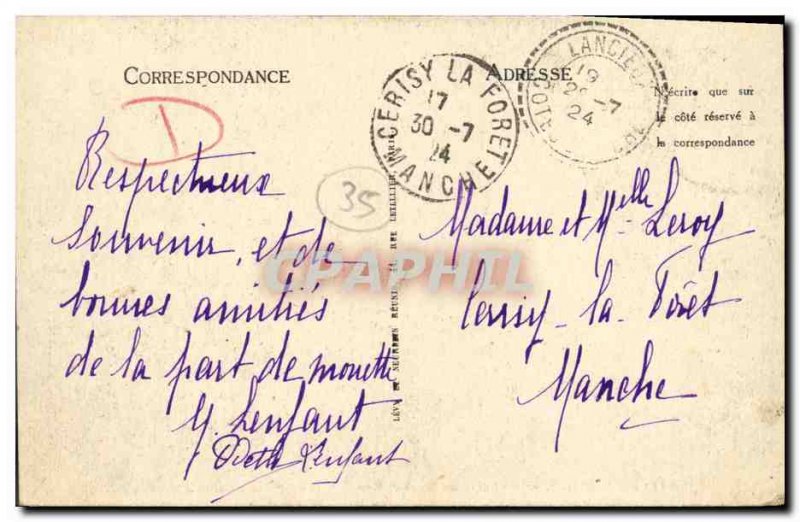 CORRESPONDANCE
ADRESSE
N'écrire que sur
le côté réservé à
la correspondance
CERISY LA FORET
17
30 -7
24
MANCHE
LANCIEUX
19
28 -7
24
COTES
D
35
Respectueux
souvenir, et de
bonnes amitiés
de la part de mouette
Y. Lenfant
Odette Lenfant
Madame et Melle Leroy
Cerisy-la-Forêt
Manche
LÉVY ET NEURDEIN RÉUNIS, 44, RUE LETELLIER, PARIS
CPAPHIL